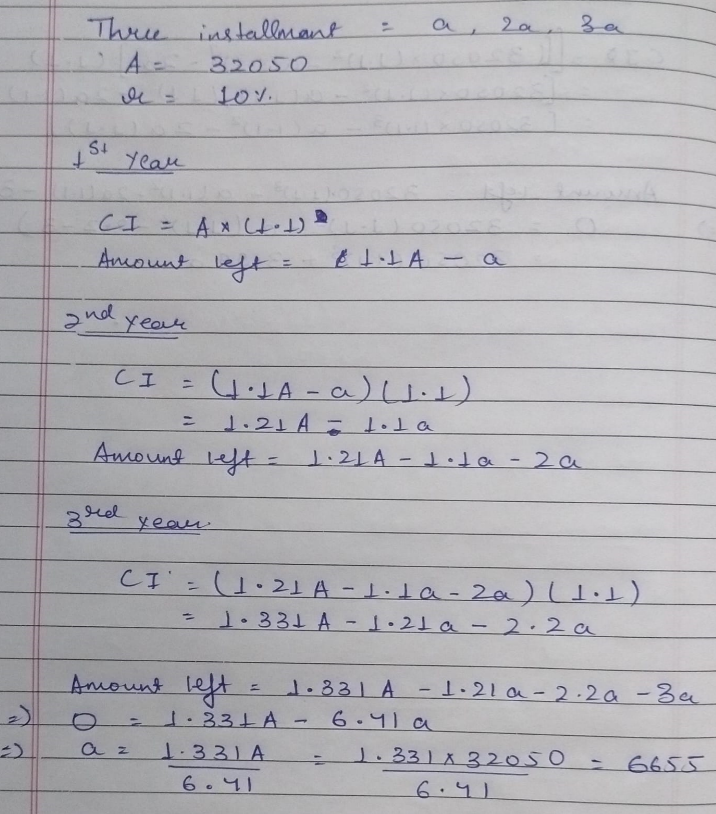 Three installment = a, 2a, 3a
A = 32050
r = 10%.
1st Year
CI = A × (1.1)
Amount left = 1.1A - a
2nd year
CI = (1.1A - a)(1.1)
= 1.21A - 1.1a
Amount left = 1.21A - 1.1a - 2a
3rd year.
CI = (1.21A - 1.1a - 2a)(1.1)
= 1.331A - 1.21a - 2.2a
Amount left = 1.331A - 1.21a - 2.2a - 3a
=) 0 = 1.331A - 6.41a
=) a = 1.331A / 6.41 = 1.331 × 32050 / 6.41 = 6655